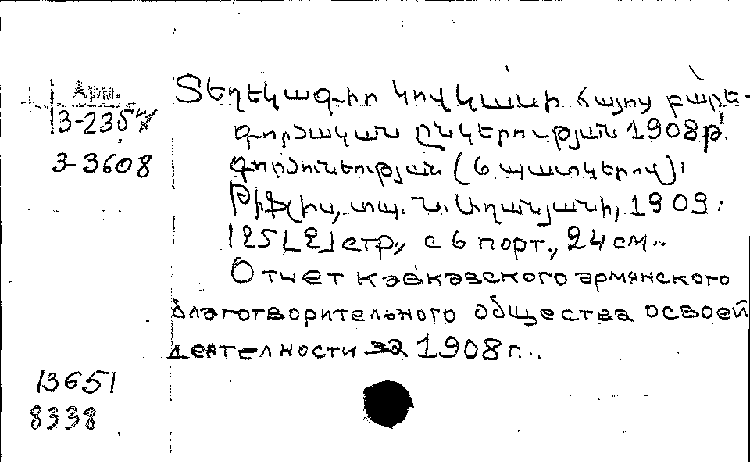 Арм.
3-2357
3-3608
Տեղեկագիր կովկասի հայոց բարե-
գործական ընկերության 1908թ.
գործունեության (6 պատկերով)։
Թիֆլիս, տպ. Ն. Աղանյանի, 1909։
125[2] стр., с 6 порт., 24 см..
Отчет кавказского армянского
благотворительного общества о своей
деятелности за 1908 г..
13651
8338